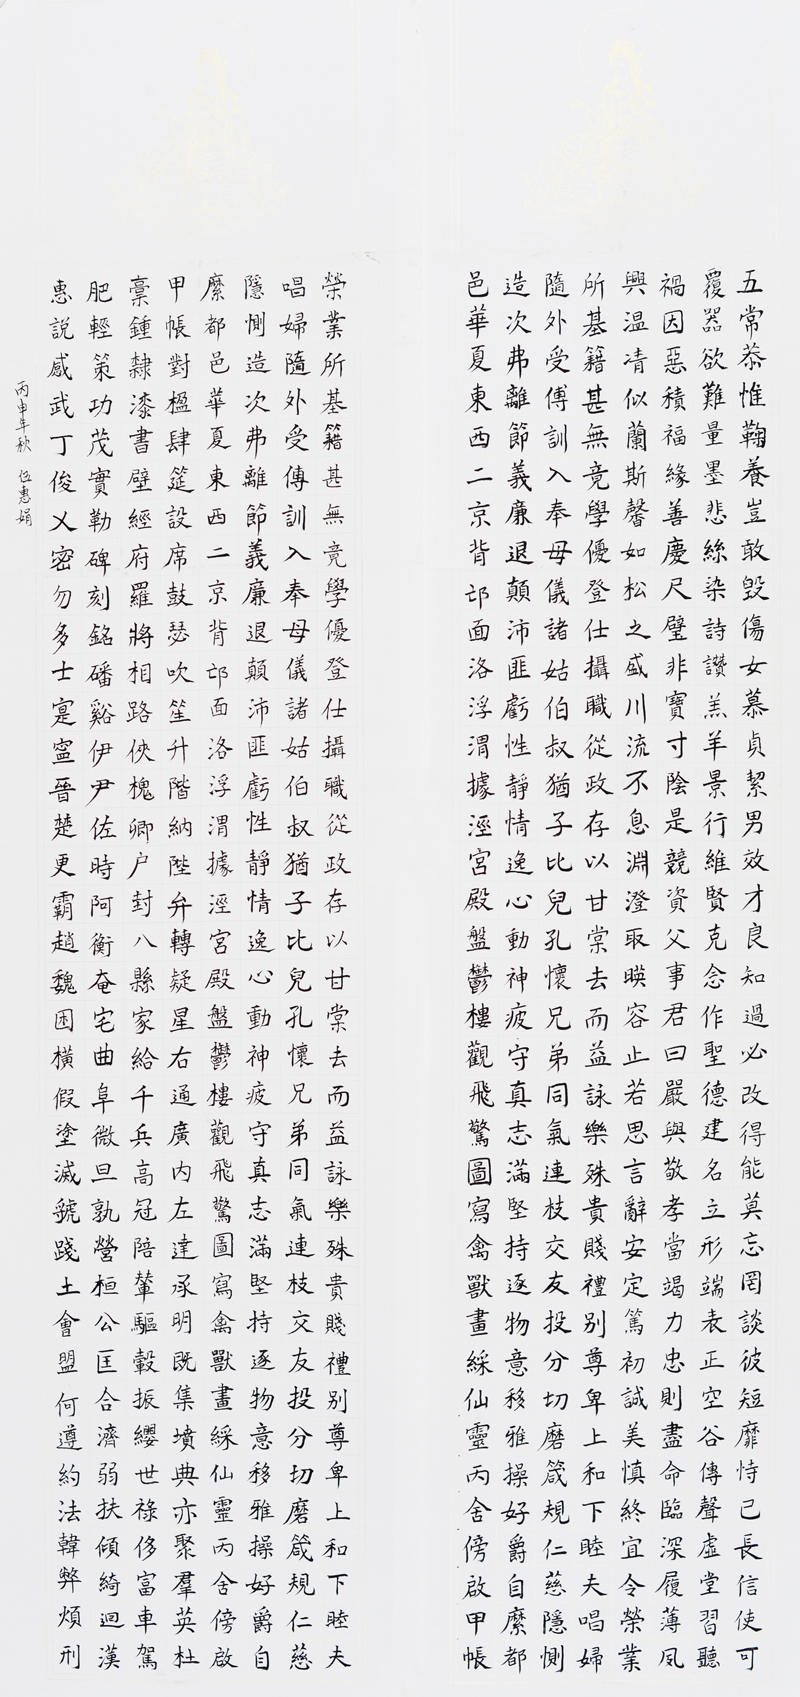 五常恭惟鞠養豈敢毀傷女慕貞絜男效才良知過必改得能莫忘罔談彼短靡恃己長信使可
覆器欲難量墨悲絲染詩讚羔羊景行維賢克念作聖德建名立形端表正空谷傳聲虛堂習聽
禍因惡積福緣善慶尺璧非寶寸陰是競資父事君曰嚴與敬孝當竭力忠則盡命臨深履薄夙
興温凊似蘭斯馨如松之盛川流不息淵澄取暎容止若思言辭安定篤初誠美慎終宜令榮業
所基籍甚無竟學優登仕攝職從政存以甘棠去而益詠樂殊貴賤禮別尊卑上和下睦夫唱婦
隨外受傅訓入奉母儀諸姑伯叔猶子比兒孔懷兄弟同氣連枝交友投分切磨箴規仁慈隱惻
造次弗離節義廉退顛沛匪虧性靜情逸心動神疲守真志滿堅持逐物意移雅操好爵自縻都
邑華夏東西二京背邙面洛浮渭據涇宮殿盤鬱樓觀飛驚圖寫禽獸畫綵仙靈丙舍傍啟甲帳
榮業所基籍甚無竟學優登仕攝職從政存以甘棠去而益詠樂殊貴賤禮別尊卑上和下睦夫
唱婦隨外受傅訓入奉母儀諸姑伯叔猶子比兒孔懷兄弟同氣連枝交友投分切磨箴規仁慈
隱惻造次弗離節義廉退顛沛匪虧性靜情逸心動神疲守真志滿堅持逐物意移雅操好爵自
縻都邑華夏東西二京背邙面洛浮渭據涇宮殿盤鬱樓觀飛驚圖寫禽獸畫綵仙靈丙舍傍啟
甲帳對楹肆筵設席鼓瑟吹笙升階納陛弁轉疑星右通廣內左達承明既集墳典亦聚羣英杜
稾鍾隸漆書壁經府羅將相路俠槐卿户封八縣家給千兵高冠陪輦驅轂振纓世祿侈富車駕
肥輕策功茂實勒碑刻銘磻谿伊尹佐時阿衡奄宅曲阜微旦孰營桓公匡合濟弱扶傾綺迴漢
惠說感武丁俊乂密勿多士寔寧晉楚更霸趙魏困橫假塗滅虢踐土會盟何遵約法韓弊煩刑
丙申年秋 伍惠娟